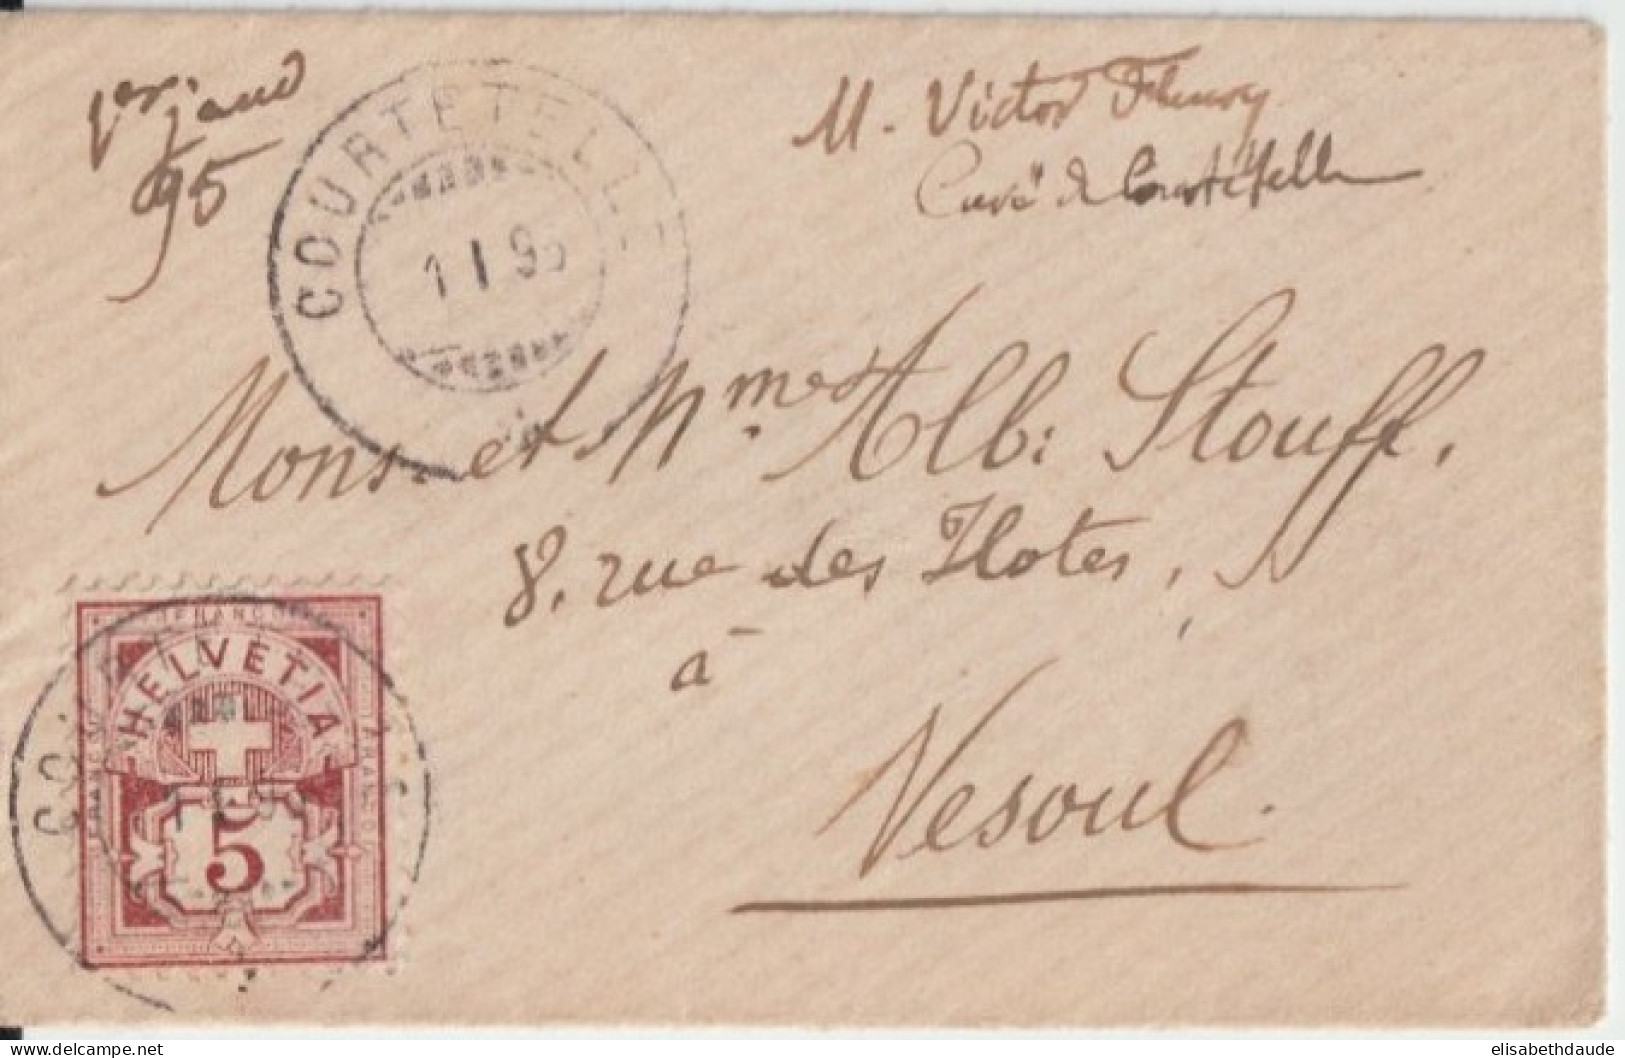 1er janv
95
COURTETELLE
1 I 95
M. Victor Fleury
Curé de Courtételle
Mons. et Mme Alb: Stouff.
8. rue des Ilotes,
à
Vesoul.
FRANCO
HELVETIA
FRANCO
FRANCO
5
elisabethdaude